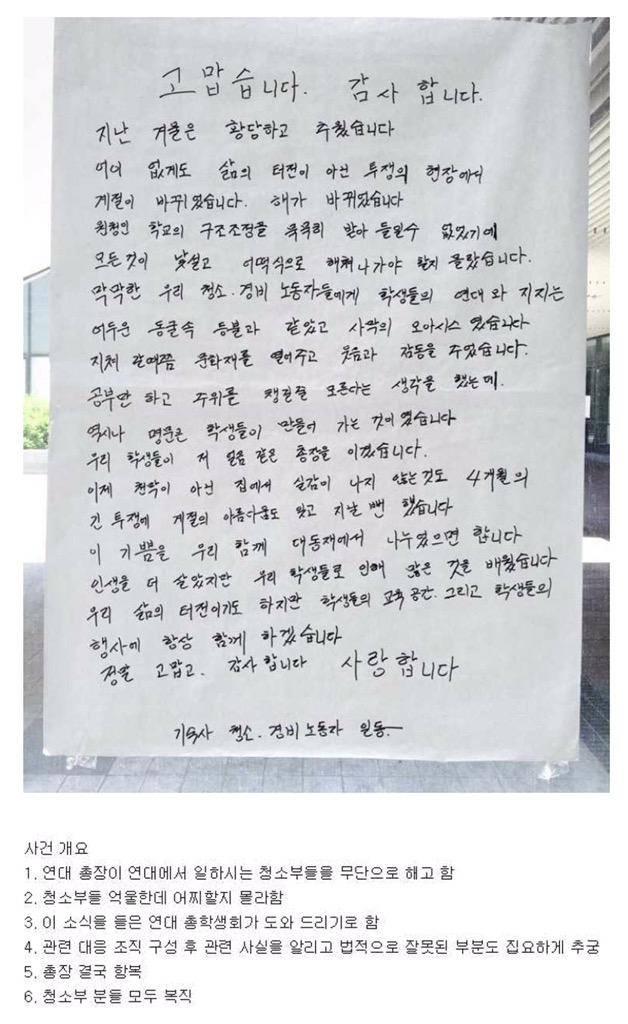 고맙습니다. 감사 합니다.
지난 겨울은 황당하고 추웠습니다
어이 없게도 삶의 터전이 아닌 투쟁의 현장에서
계절이 바뀌었습니다. 해가 바뀌었습니다
원청인 학교의 구조조정을 묵묵히 받아 들일수 없었기에
모든것이 낯설고 어떡식으로 해쳐나가야 할지 몰랐습니다.
막막한 우리 청소.경비 노동자들에게 학생들의 연대와 지지는
어두운 동굴속 등불과 같았고 사막의 오아시스 였습니다
지쳐 갈때쯤 문화재를 열어주고 웃음과 감동을 주었습니다.
공부만 하고 주위를 챙길줄 모른다는 생각을 했는데.
역시나 명문은 학생들이 만들어 가는 것이였습니다
우리 학생들이 저 얼음 같은 총장을 이겼습니다.
이제 천막이 아닌 집에서 실감이 나지 않는것도 4개월의
긴 투쟁에 계절의 아름다움도 잊고 지날 뻔 했습니다
이 기쁨을 우리 함께 대동재에서 나누었으면 합니다
인생을 더 살았지만 우리 학생들로 인해 많은 것을 배웠습니다
우리 삶의 터전이기도 하지만 학생들의 교육 공간. 그리고 학생들의
행사에 항상 함께 하겠습니다
정말 고맙고. 감사합니다 사랑합니다
기숙사 청소.경비 노동자 일동.
사건 개요
1. 연대 총장이 연대에서 일하시는 청소부들을 무단으로 해고 함
2. 청소부들 억울한데 어찌할지 몰라함
3. 이 소식을 들은 연대 총학생회가 도와 드리기로 함
4. 관련 대응 조직 구성 후 관련 사실을 알리고 법적으로 잘못된 부분도 집요하게 추궁
5. 총장 결국 항복
6. 청소부 분들 모두 복직